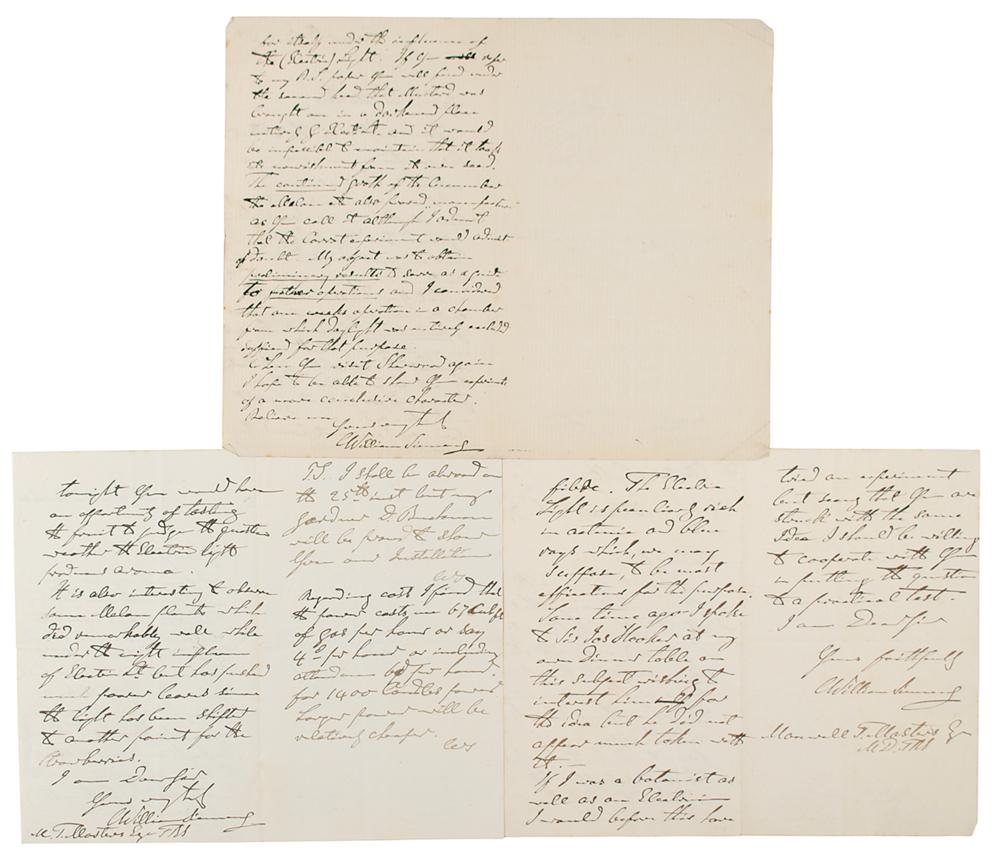 for itself under the influence of
the (Electric) Light. If you refer
to my R.S. paper you will find under
the second head that Mustard was
brought on in a darkened place
entirely by Electricity and it would
be impossible to maintain that it took
its nourishment from its own seed.
The continued growth of the Cucumber
the Melon etc also proved
as you call it although I admit
that the Carrot experiment would admit
of doubt. My object was to obtain
preliminary results to serve as a guide
to further operations and I considered
that one weeks operation in a chamber
from which daylight was entirely excluded
sufficient for that purpose.
When you visit Sherwood again
I hope to be able to show you experiments
of a more conclusive character.
Believe me
Yours very truly
C William Siemens
tonight you would have
an opportunity of tasting
the fruit & judge the question
weather the Electric light
produces aroma.
It is also interesting to observe
some Melon plants which
did remarkably well while
under the night influence
of Electric Lt but has pushed
most poorer leaves since
the light has been shifted
to another point for the
strawberries.
I am Dear Sir
Yours very truly
C William Siemens
M. T. Masters Esqr FRS
P.S. I shall be abroad on
the 25th inst but my
gardner D. Buchanan
will be proud to show
you our Installation
CWS
Regarding cost I find that
the power costs me
of gas per hour or say
4d per hour or including
attendance 6d per hour.
for 1400 Candles power
Larger power will be
relatively cheaper.
CWS
. The Electric
Light is peculiarly rich
in actinic and blue
rays which, we may
suppose, to be most
efficacious for the purpose.
Some time ago I spoke
to Sir Jos Hooker at my
own Dinner table on
this subject wishing to
interest him for
the idea but he did not
appear much taken with
it.
If I was a botanist as
well as an Electrician
I would before this have
tried an experiment
but seeing that you are
struck with the same
Idea I should be willing
to cooperate with you
in putting the question
to a practical test.
I am Dear Sir
Yours faithfully
C William Siemens
Maxwell T. Masters Esqr
M.D. FRS